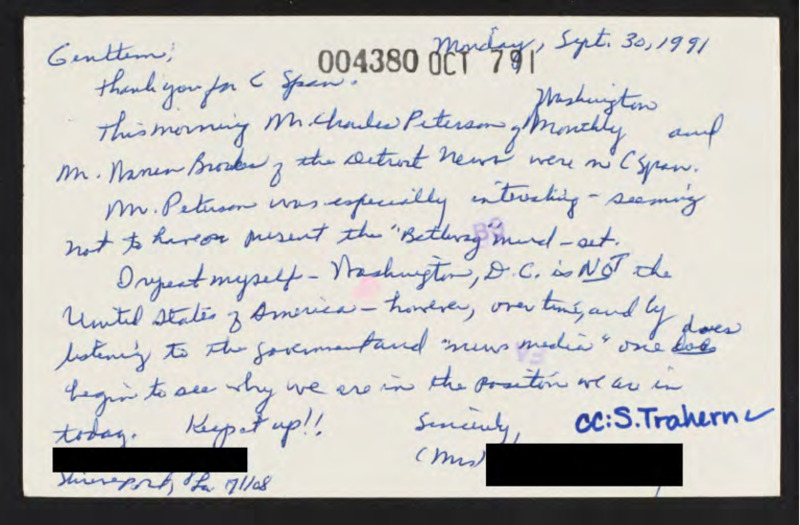 Monday, Sept. 30, 1991
Gentlem;
004380 OCT 7 91
Thank you for C Span.
This morning Mr. Charles Peterson of Washington Monthly and
Mr. Brooks of the Detroit News were on C Span.
Mr. Peterson was especially interesting - seeming
not to have or present the "Beltway" mind-set.
I repeat myself - Washington, D.C. is NOT the
United States of America - however, over time, and by
listening to the government and "news media" one does
begin to see why we are in the position we are in
today. Keep it up!!
Sincerely,
cc: S. Trahern
(Mrs)
Shreveport, La 71108